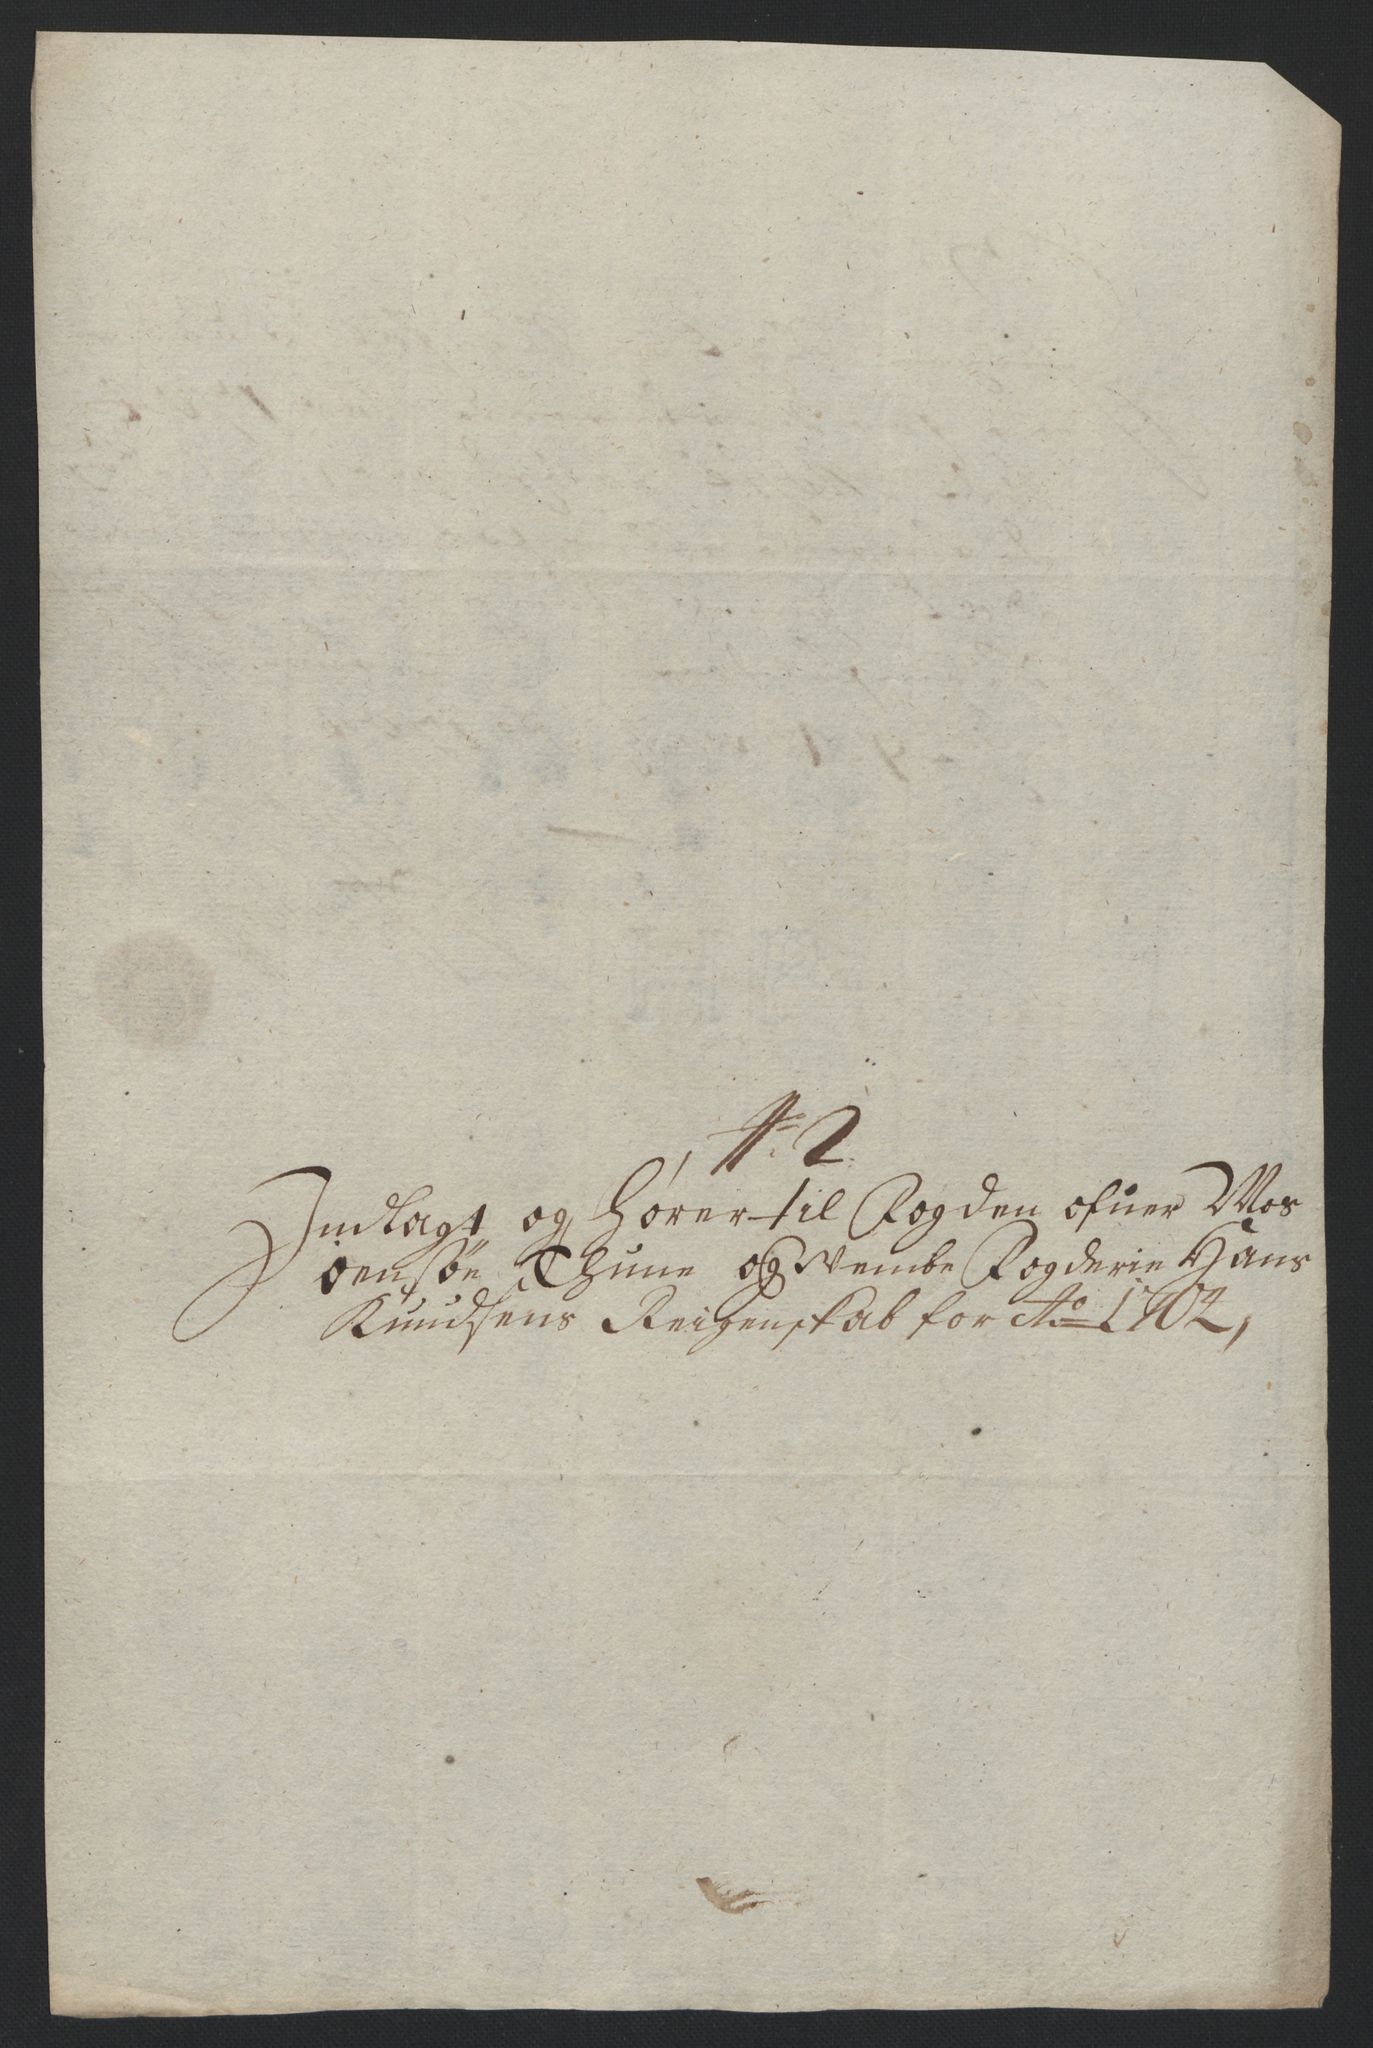 No 2
Indlagt og hører til Fogden ofuer Mos
oensøe Thune og Vembe Fogderie Hans
Knudsens Reigenskab for Ao 1702,